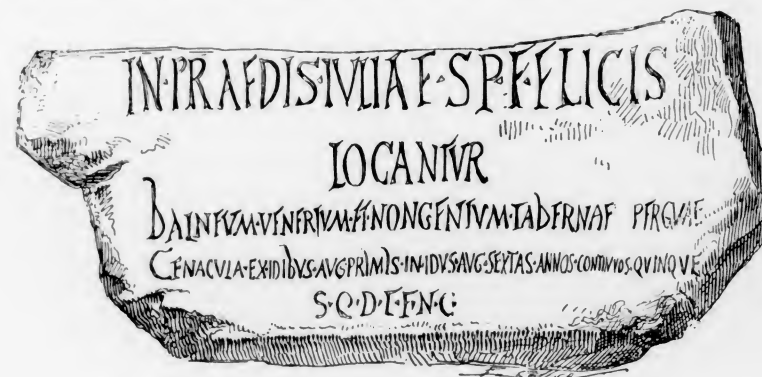 IN·PRAEDIS·IVLIAE·SP·F·FELICIS
LOCANTVR
BALNEVM·VENERIVM·ET·NONGENTVM·TABERNAE PERGVLAE
CENACVLA·EX·IDIBVS·AVG·PRIMIS·IN·IDVS·AVG·SEXTAS·ANNOS·CONTINVOS·QVINQVE
S·Q·D·L·E·N·C·